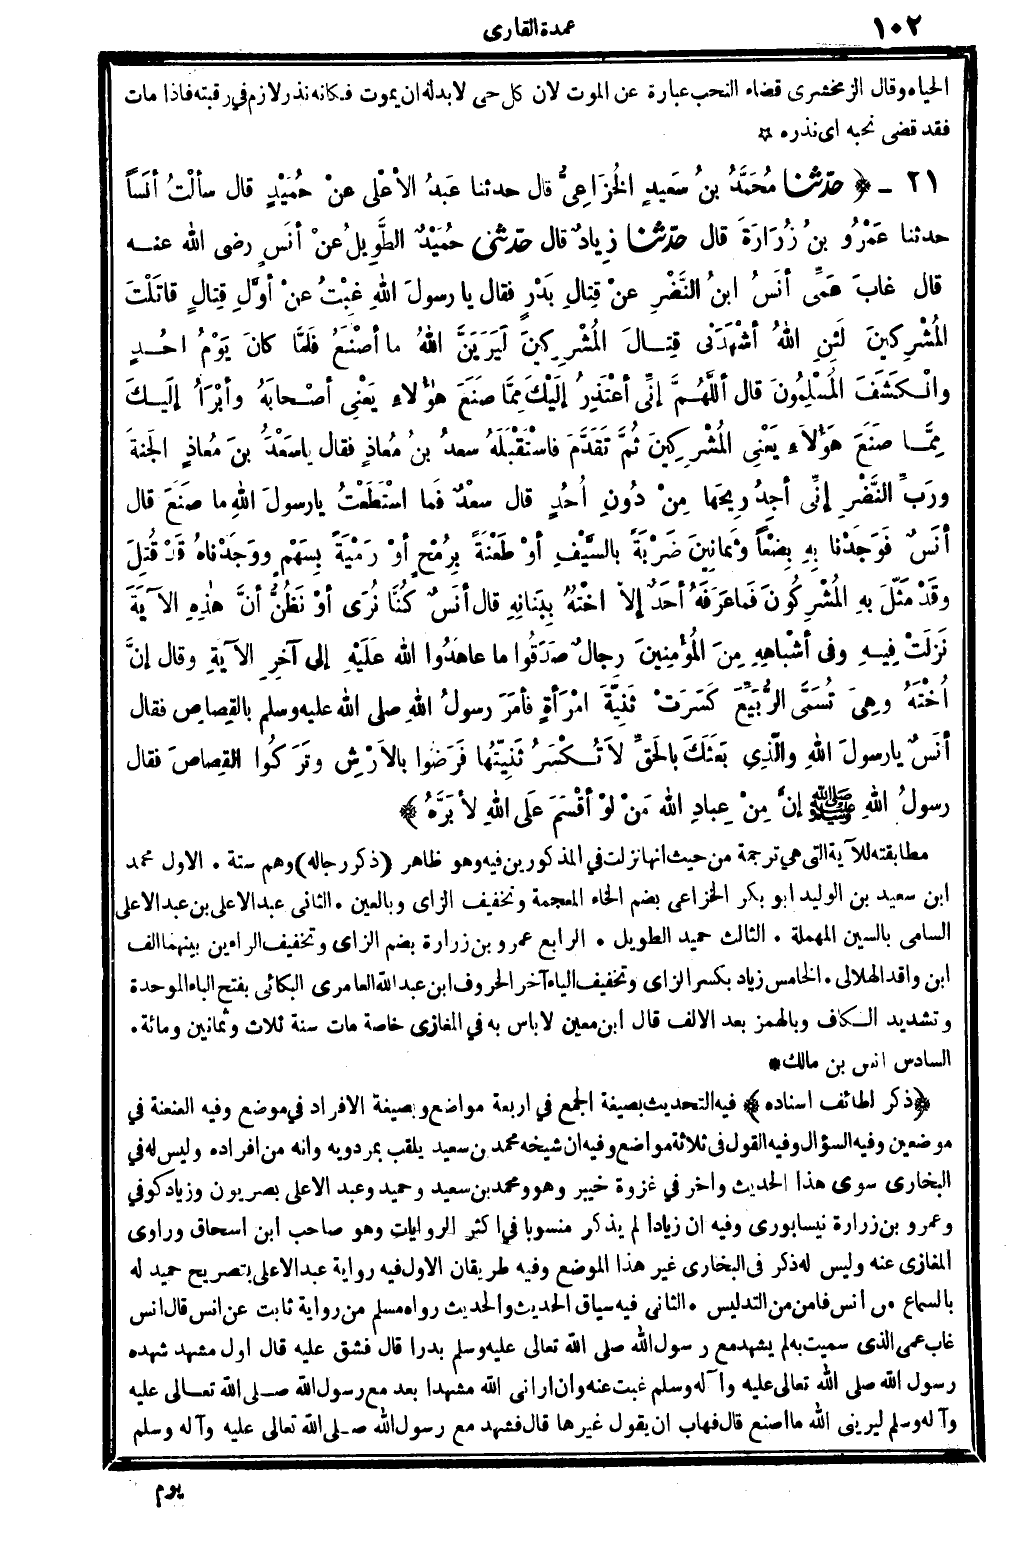 ١٠٢
عمدة القارى
الحياه وقال الزمخشرى قضاء النحب عبارة عن الموت لان كل حى لا بدله ان يموت فكانه نذر لازم في رقبته فاذا مات
فقد قضى نحبه اى نذره ☆
٢١ ـ ﴿ حدثنا مُحَمَّدُ بنُ سَعِيدٍ الخُزَاعِيُّ قال حدثنا عَبدُ الأعْلى عنْ حُمَيْدٍ قال سألْتُ أنَساً
حدثنا عَمْرُو بنُ زُرَارَةَ قال حدّثنا زِيادٌ قال حدّثنى حُمَيْدٌ الطَّوِيلُ عنْ أنَسٍ رضى الله عنه
قال غابَ عَمِّى أنَسُ ابنُ النَّضْرِ عنْ قِتالِ بَدْرٍ فقال يا رسولَ اللهِ غِبْتُ عنْ أوَّلِ قِتالٍ قاتَلْتَ
المُشْرِكينَ لَئِنِ اللهُ أشْهَدَنِى قِتالَ المُشْرِكِينَ لَيَرَيَنَّ اللهُ ما أصْنَعُ فَلَمَّا كانَ يَوْمُ احُدٍ
وانْكَشَفَ المُسْلِمُونَ قال أللَّهُمَّ إنِّى أعْتَذِرُ إلَيْكَ مِمَّا صنَعَ هؤُلاءِ يَعْنِى أصْحابَهُ وأبْرَأُ إلَيكَ
مِمَّا صنَعَ هَؤُلاَءِ يَعْنِى المُشْرِكِينَ ثُمَّ تَقَدَّمَ فاسْتَقْبَلَهُ سعدُ بنُ مُعاذٍ فقال ياسَعْدُ بنَ مُعاذٍ الجَنةَ
ورَبِّ النَّضْرِ إنِّى أجِدُ رِيحَها مِنْ دُونِ أُحُدٍ قال سعْدٌ فَما اسْتَطَعْتُ يا رسولَ اللهِ ما صنَعَ قال
أنَسٌ فَوَجَدْنا بِهِ بِضْعاً وثَمانِينَ ضَرْبَةً بالسَّيْفِ أوْ طَعْنَةً بِرُمْحٍ أوْ رَمْيَةً بِسَهْمٍ ووجَدْناهُ قَدْ قُتِلَ
وقَدْ مَثَّلَ بهِ المُشْرِكُونَ فَما عَرَفَهُ أحَدٌ إلاّ اخْتُهُ بِبَنانِهِ قال أنَسٌ كُنَّا نُرَى أوْ نَظُنُّ أنَّ هذِهِ الآيَةَ
نَزَلَتْ فِيهِ وفى أشْباهِهِ مِنَ المُؤْمِنِينَ رِجالٌ صَدَقُوا ما عاهَدُوا الله عَلَيْهِ إلى آخِرِ الآيةِ وقال إنَّ
أُخْتَهُ وهِىَ تُسَمَّى الرُّبَيِّعَ كَسَرَتْ ثَنِيَّةَ امْرَأةٍ فأمَرَ رسولُ اللهِ صلى الله عليه وسلم بالقِصاصِ فقال
أنَسٌ يارسولَ اللهِ والَّذِى بَعَثَكَ بالحَقِّ لاَ تُكْسَرُ ثَنِيَّتُها فَرَضُوا بالأرْشِ وتَرَكُوا القِصاصَ فقال
رسولُ اللهِ ﷺ إنَّ مِنْ عِبادِ الله مَنْ لوْ أقْسَمَ عَلَى اللهِ لأبَرَّهُ ﴾
مطابقته للآية التى هي ترجمة من حيث انها نزلت في المذكورين فيه وهو ظاهر (ذكر رجاله) وهم ستة . الاول محمد
ابن سعيد بن الوليد ابو بكر الخزاعى بضم الخاء المعجمة وتخفيف الزاى وبالعين . الثانى عبد الاعلى بن عبد الاعلى
السامى بالسين المهملة . الثالث حميد الطويل . الرابع عمرو بن زرارة بضم الزاى وتخفيف الراءين بينهما الف
ابن واقد الهلالى . الخامس زياد بكسر الزاى وتخفيف الياء آخر الحروف ابن عبد الله العامرى البكائى بفتح الباء الموحدة
وتشديد الكاف وبالهمز بعد الالف قال ابن معين لا باس به في المغازى خاصة مات سنة ثلاث وثمانين ومائة .
السادس انس بن مالك *
﴿ ذكر لطائف اسناده ﴾ فيه التحديث بصيغة الجمع في اربعة مواضع وبصيغة الافراد في موضع وفيه العنعنة في
موضعين وفيه السؤال وفيه القول فى ثلاثة مواضع وفيه ان شيخه محمد بن سعيد يلقب بمردويه وانه من افراده وليس له في
البخارى سوى هذا الحديث واخر في غزوة خيبر وهو ومحمد بن سعيد وحميد وعبد الاعلى بصريون وزياد كوفى
وعمرو بن زرارة نيسابورى وفيه ان زيادا لم يذكر منسوبا في اكثر الروايات وهو صاحب ابن اسحاق وراوى
المغازى عنه وليس له ذكر فى البخارى غير هذا الموضع وفيه طريقان الاول فيه رواية عبد الاعلى بتصريح حميد له
بالسماع من أنس فامن من التدليس . الثانى فيه سياق الحديث والحديث رواه مسلم من رواية ثابت عن انس قال انس
غاب عمى الذى سميت به لم يشهد مع رسول الله صلى الله تعالى عليه وسلم بدرا قال فشق عليه قال اول مشهد شهده
رسول الله صلى الله تعالى عليه وآله وسلم غبت عنه وان ارانى الله مشهدا بعد مع رسول الله صلى الله تعالى عليه
وآله وسلم ليرينى الله ما اصنع قال فهاب ان يقول غيرها قال فشهد مع رسول الله صلى الله تعالى عليه وآله وسلم
يوم